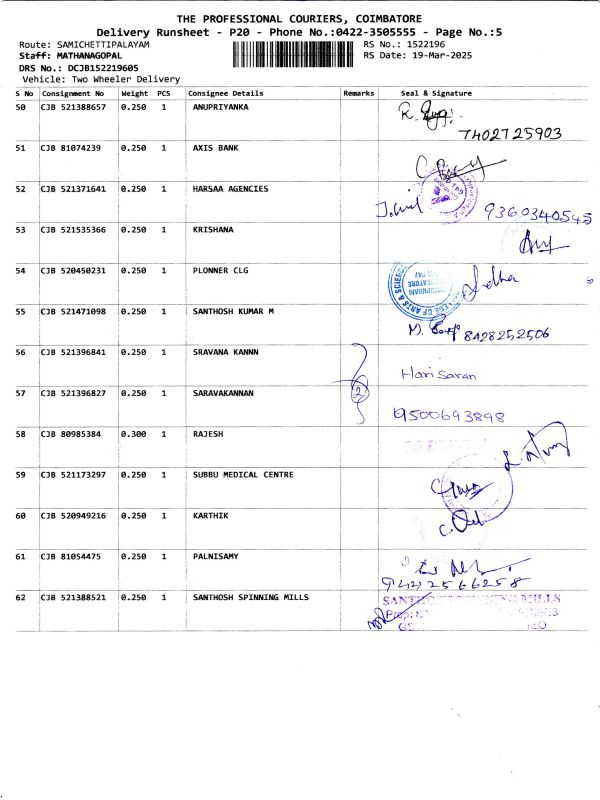 THE PROFESSIONAL COURIERS, COIMBATORE
Delivery Runsheet - P20 - Phone No.:0422-3505555 - Page No.:5
Route: SAMICHETTIPALAYAM RS No.: 1522196
Staff: MATHANAGOPAL RS Date: 19-Mar-2025
DRS No.: DCJB152219605
Vehicle: Two Wheeler Delivery
S No Consignment No Weight PCS Consignee Details Remarks Seal & Signature
50 CJB 521388657 0.250 1 ANUPRIYANKA
7402725903
51 CJB 81074239 0.250 1 AXIS BANK
52 CJB 521371641 0.250 1 HARSAA AGENCIES
9360340545
53 CJB 521535366 0.250 1 KRISHANA
54 CJB 520450231 0.250 1 PLONNER CLG
COLLEGE OF ARTS & SCIENCE
55 CJB 521471098 0.250 1 SANTHOSH KUMAR M
8428252506
56 CJB 521396841 0.250 1 SRAVANA KANNN
Hari Saran
57 CJB 521396827 0.250 1 SARAVAKANNAN 2
9500693898
58 CJB 80985384 0.300 1 RAJESH
59 CJB 521173297 0.250 1 SUBBU MEDICAL CENTRE
60 CJB 520949216 0.250 1 KARTHIK
61 CJB 81054475 0.250 1 PALNISAMY
9442566258
62 CJB 521388521 0.250 1 SANTHOSH SPINNING MILLS